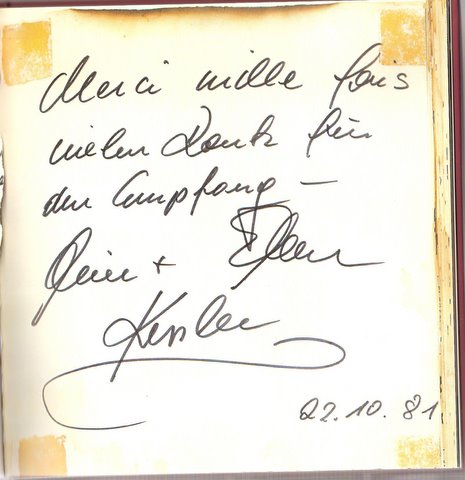 Merci mille fois
vielen Dank für
den Empfang –
Alice + Ellen
Kessler
22.10.81